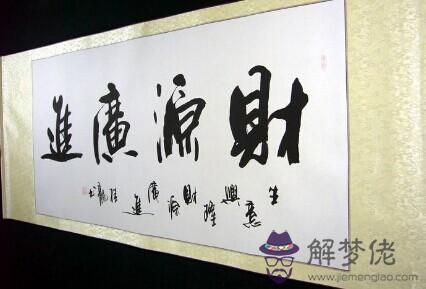 財源廣進
生意興隆財源廣進
解梦佬
www.jiemenglao.com